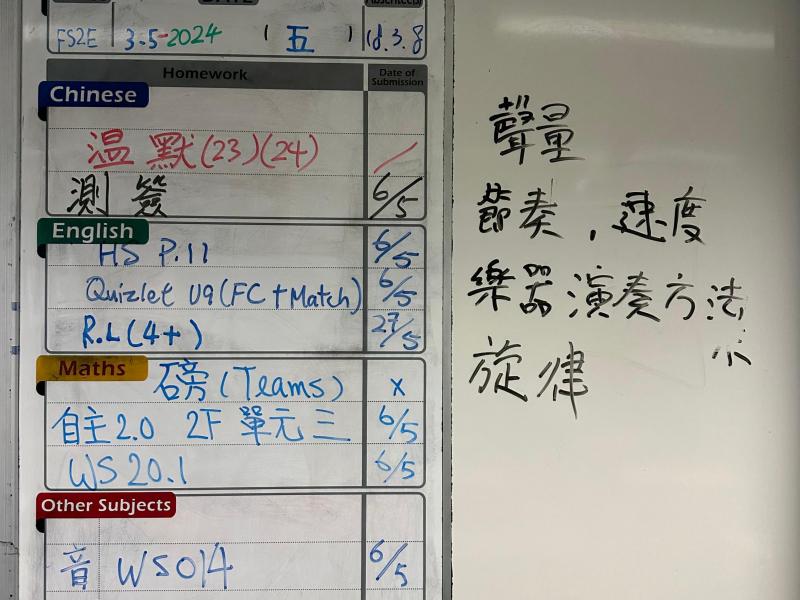 FS2E 3.5-2024 (五) 18.3.8
Homework Date of Submission
Chinese
温 默(23)(24) /
測 簽 6/5
English
HS P.11 6/5
Quizlet U9(FC+Match) 6/5
R.L(4+) 27/5
Maths
磅(Teams) x
自主2.0 2F 單元三 6/5
WS 20.1 6/5
Other Subjects
音 WS014 6/5
聲量
節奏，速度
樂器演奏方法
旋律